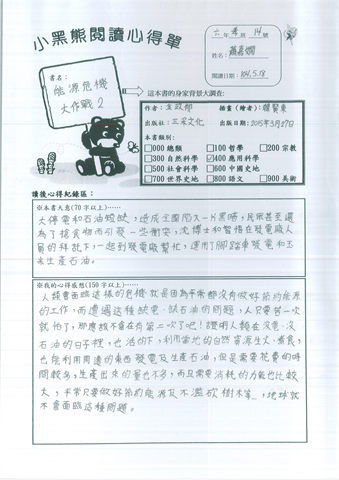 小黑熊閱讀心得單
六年孝班14號
姓名：
閱讀日期：104.5.18
書名：
能源危機
大作戰2
這本書的身家背景大調查：
作者：王政郎
插畫(繪者)：韓賢東
出版社：三采文化
出版日期：2015年3月27日
本書類別：
□000總類 □100哲學 □200宗教
□300自然科學 ☑400應用科學
□500社會科學 □600中國史地
□700世界史地 □800語文 □900美術
讀後心得紀錄區：
※本書大意(70字以上)……
大停電和石油短缺，造成王國陷入一片黑暗，民眾甚至還
為了搶食物而引發一些衝突，沈博士和智悟在發電廠人
員的拜託下，一起到發電廠幫忙，運用了腳踏車發電和玉
米生產石油。
※我的心得感想(150字以上)……
人類會面臨這樣的危機就是因為平常都沒有做好節約能源
的工作，而遭遇這種缺電、缺石油的問題，人只要苦一次
就怕了，那應該不會在有第二次了吧！證明人類在沒電、沒
石油的日子裡，也活的下，利用當地的自然資源生火、煮食，
也能利用周邊的東西發電及生產石油，但是需要花費的時
間較多，生產出來的量也不多，而且需要消耗的力氣也比較
大，平常只要做好節約能源及不濫砍樹木等，地球就
不會面臨這種問題。